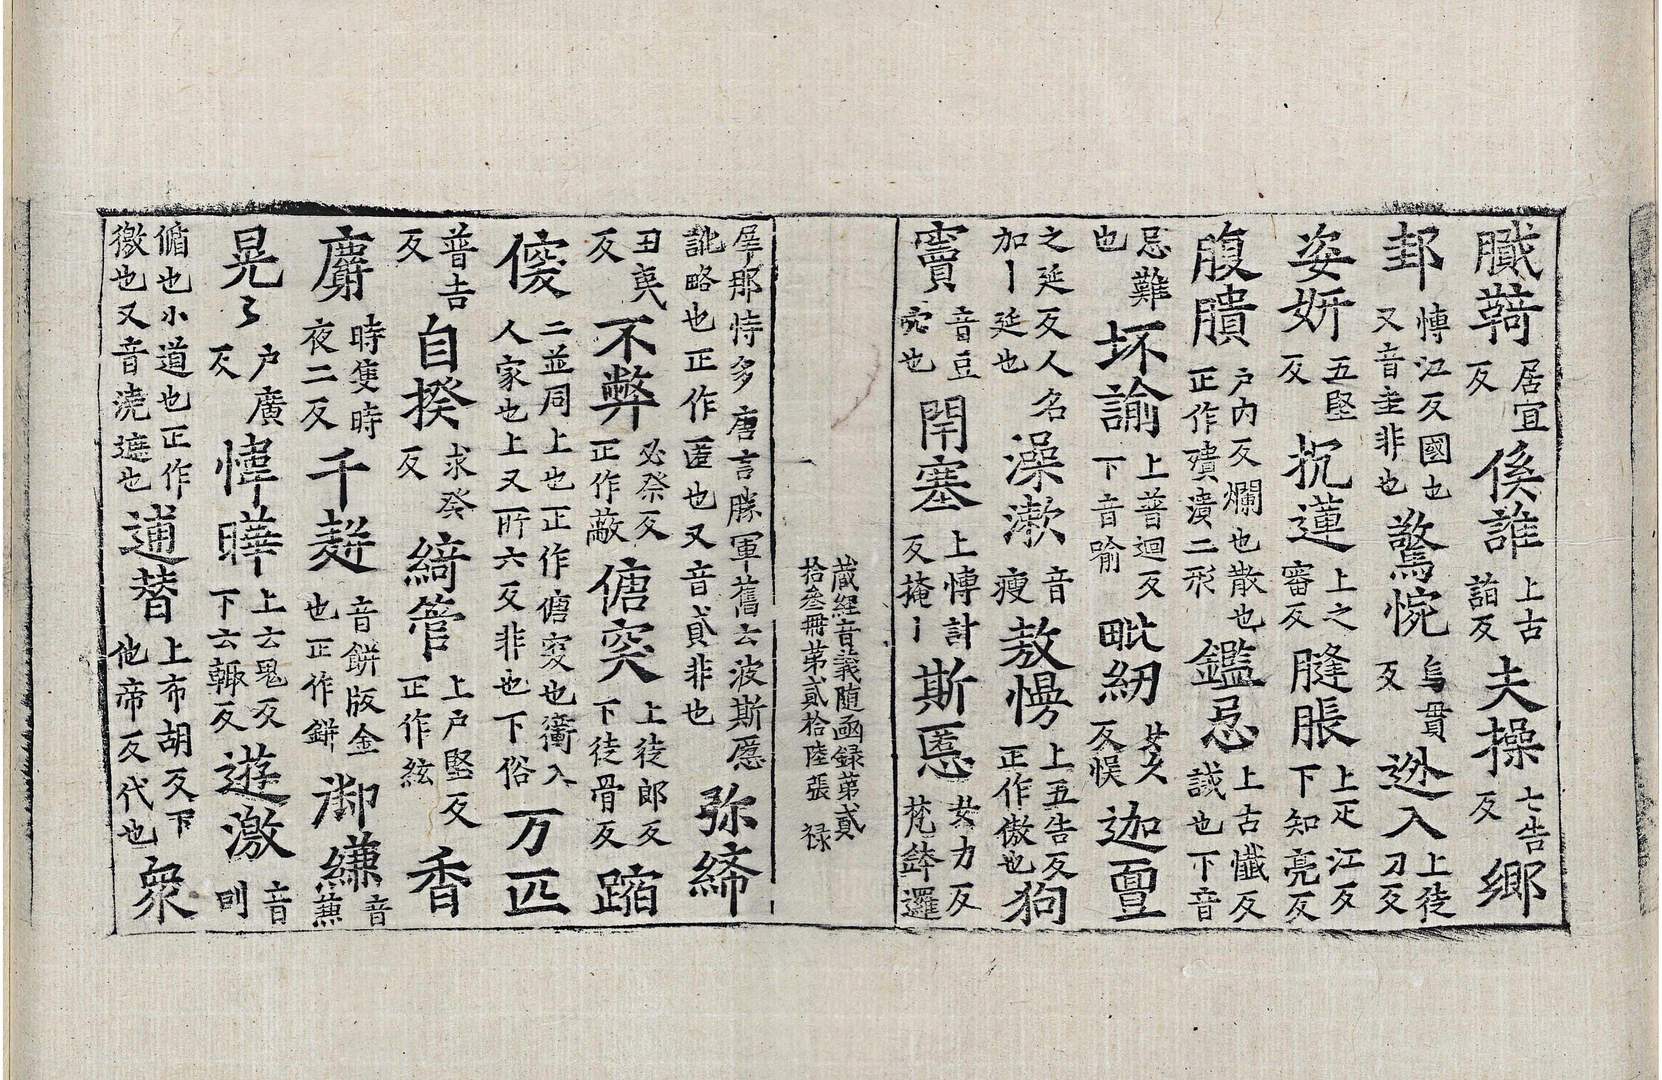 膱䩭居宜反 傒誰上古諧反 夫操七告反 鄉
邽愽江反國也又音圭非也 驚惋烏貫反 迯入上徒刀反
姿妍五堅反 扻蓮上之審反 膖脹上疋江反下知亮反
腹膭户内反爛也散也正作殨潰二形 鑑忌上古懺反誡也下音
忌難也 坏諭上普迴反下音喻 毗紉女久反悮 迦亶
之延反人名加丨延也 澡漱音瘦 敖慢上五告反正作傲也 狗
竇音豆宂也 閇塞上愽計反掩丨 斯慝女力反梵鉢邏
藏經音義隨函録第貳
拾叁冊第貳拾陸張 禄
犀那恃多唐言勝軍舊云波斯慝 弥締
訛略也正作匿也又音貣非也
丑夷反 不弊必祭反正作蔽 傏突上徒郎反下徒骨反 蹹
傻二並同上也正作傏突也衝入人家也上又所六反非也下俗 万匹
普吉反 自揆求癸反 綺管上户堅反正作絃 香
麝時隻時夜二反 千䴵音餅版金也正作鉼 㵧縑音蒹
晃了户廣反 愇曄上云鬼反下云輙反 遊激音則
循也小道也正作徼也又音澆遮也 逋替上布胡反下他帝反代也 衆